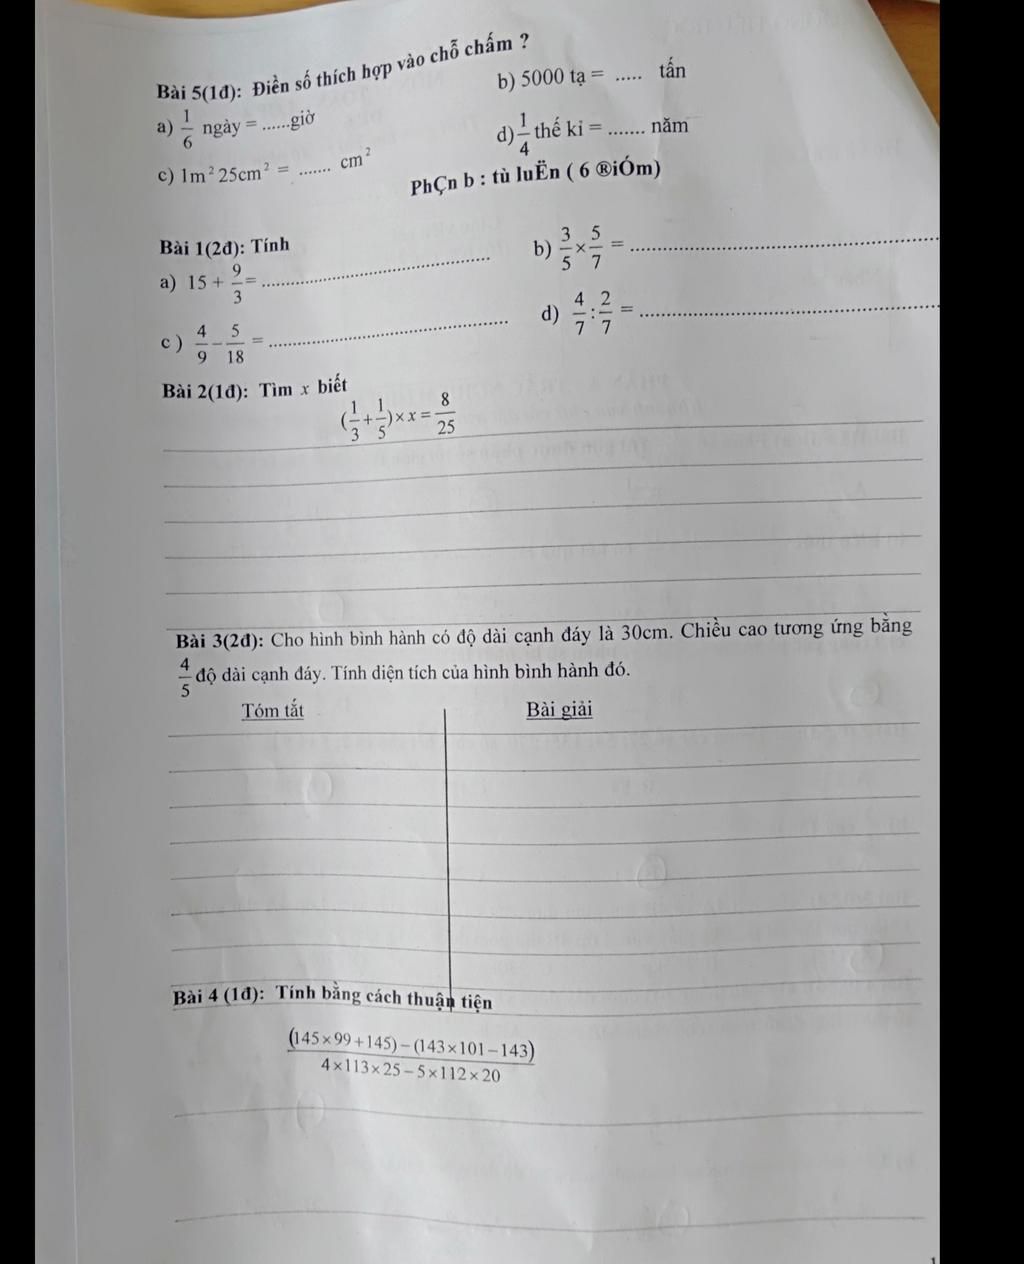 Bài 5(1đ): Điền số thích hợp vào chỗ chấm ?
a) 1/6 ngày = ......giờ
b) 5000 tạ = ..... tấn
c) 1m² 25cm² = ....... cm²
d) 1/4 thế kỉ = ....... năm
PhÇn b : tù luËn ( 6 ®iÓm)
Bài 1(2đ): Tính
a) 15 + 9/3 = ..........................................
b) 3/5 × 5/7 = ..........................................
c ) 4/9 − 5/18 = ..........................................
d) 4/7 : 2/7 = ..........................................
Bài 2(1đ): Tìm x biết
(1/3 + 1/5) × x = 8/25
Bài 3(2đ): Cho hình bình hành có độ dài cạnh đáy là 30cm. Chiều cao tương ứng bằng
4/5 độ dài cạnh đáy. Tính diện tích của hình bình hành đó.
Tóm tắt
Bài giải
Bài 4 (1đ): Tính bằng cách thuận tiện
(145×99+145)−(143×101−143)
4×113×25−5×112×20
1